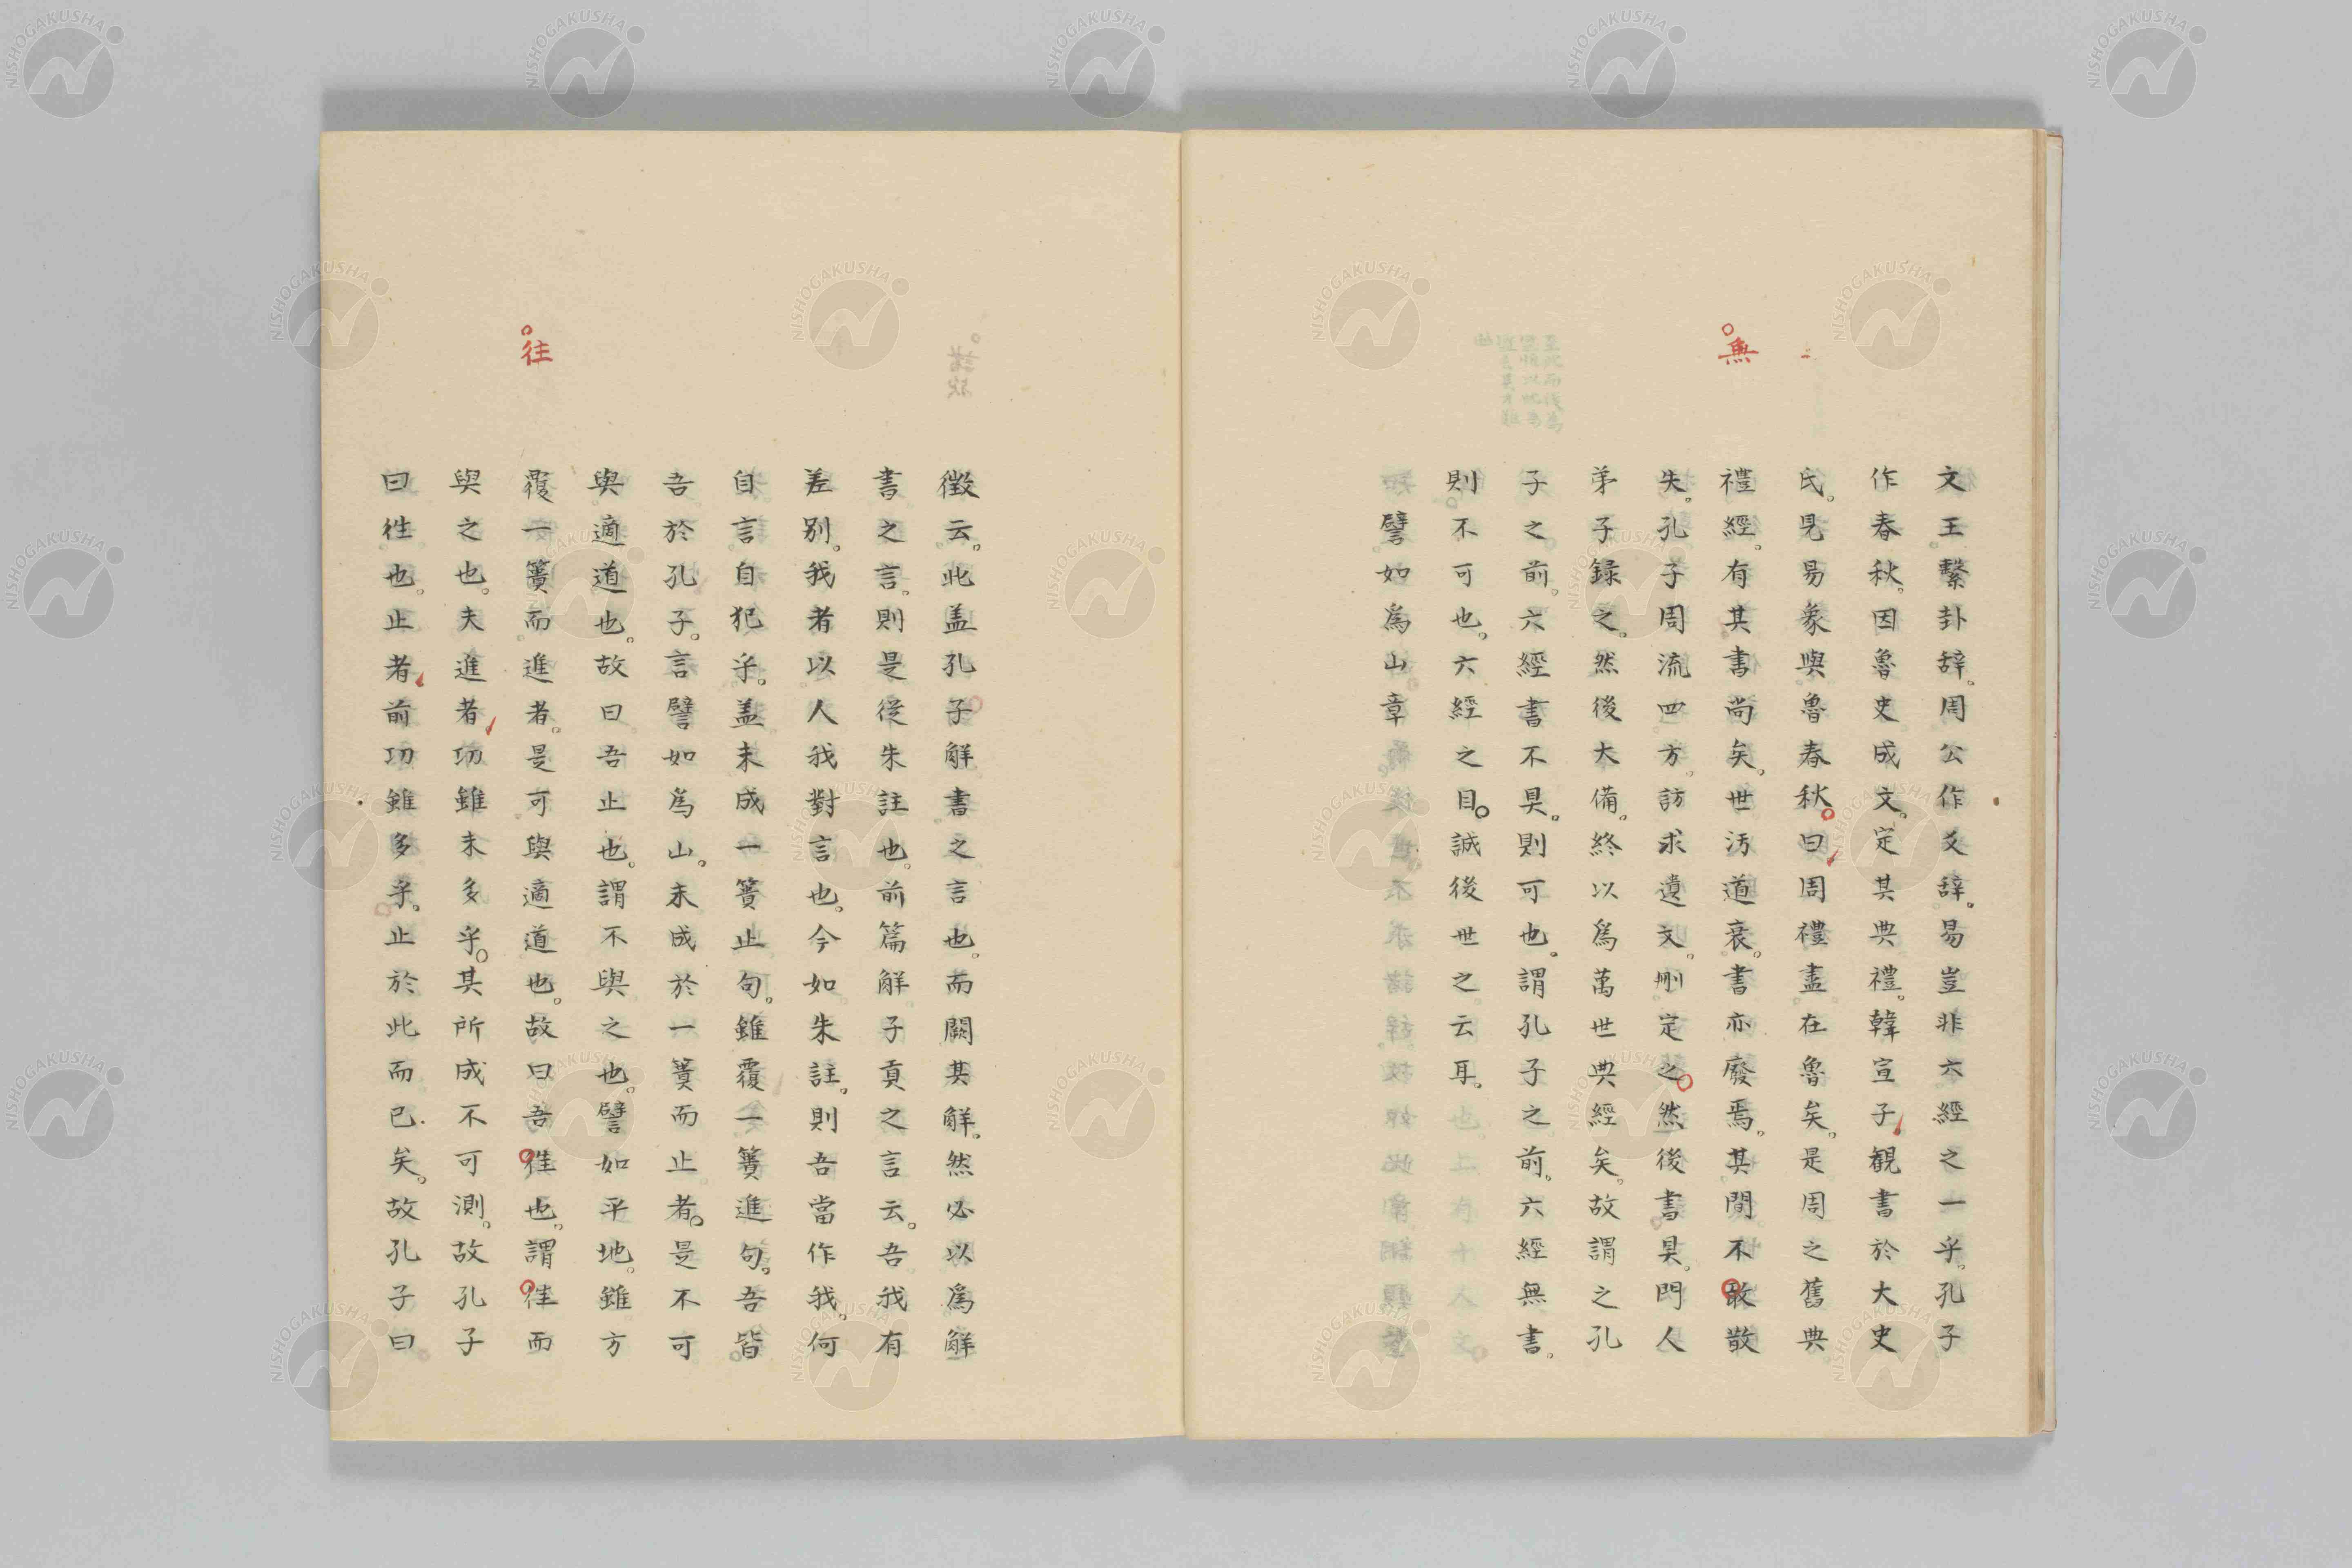 無
文王繫卦辞。周公作爻辞。易豈非六經之一乎。孔子
作春秋。因魯史成文。定其典禮。韓宣子觀書於大史
氏。見易象與魯春秋。曰周禮盡在魯矣。是周之舊典
禮經。有其書尚矣。世汚道衰。書亦廢焉。其間不敢散
失。孔子周流四方。訪求遺文。刪定之。然後書具。門人
弟子録之。然後大備。終以爲萬世典經矣。故謂之孔
子之前。六經書不具。則可也。謂孔子之前。六經無書。
則不可也。六經之目。誠後世之云耳。
譬如爲山章
往
徴云。此盖孔子解書之言也。而闕其解。然必以爲解
書之言。則是従朱註也。前篇解子貢之言云。吾我有
差别。我者以人我對言也。今如朱註。則吾當作我。何
自言自犯乎。盖未成一簣止句。雖覆一簣進句。吾皆
吾於孔子。言譬如爲山。未成於一簣而止者。是不可
與適道也。故曰吾止也。謂不與之也。譬如平地。雖方
覆一簣而進者。是可與適道也。故曰吾徃也。謂徃而
與之也。夫進者功雖未多乎。其所成不可測。故孔子
曰徃也。止者前功雖多乎。止於此而已矣。故孔子曰
NISHOGAKUSHA